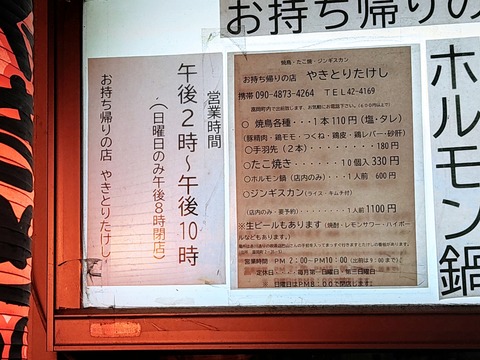 お持ち帰りの
ホルモン鍋
焼鳥・たこ焼・ジンギスカン
お持ち帰りの店 やきとりたけし
携帯 090-4873-4264 TEL42-4169
○ 焼鳥各種・・・1本110円（塩・タレ）
（豚精肉・鶏モモ・つくね・鶏皮・鶏レバー・砂肝）
○手羽先（2本）・・・・・・・・・180円
○たこ焼き・・・・・10個入330円
○ホルモン鍋（店内のみ）・・・1人前 600円
○ジンギスカン（ライス・キムチ付）
（店内のみ・要予約）・・・・・1人前1100円
※生ビールもあります（焼酎・レモンサワー・ハイボー
ルなどもあります。）
営業時間 PM2：00～PM10：00
定休日・・・毎月第一日曜日・第三日曜日
※ 日曜日はPM8：00で閉店します。
営業時間
午後2時～午後10時
（日曜日のみ午後8時閉店）
お持ち帰りの店 やきとりたけし